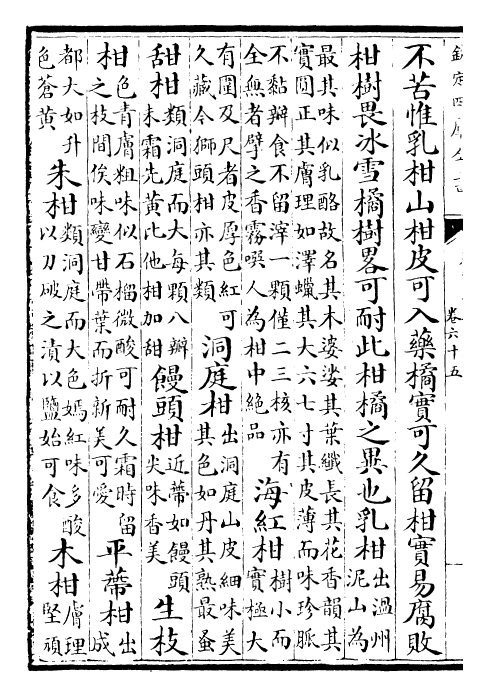 欽定四庫全書
卷六十五
不苦惟乳柑山柑皮可入藥橘實可久留柑實易腐敗
柑樹畏冰雪橘樹畧可耐此柑橘之異也乳柑出温州泥山為
最其味似乳酪故名其木婆娑其葉纖長其花香韻其
實圓正其膚理如澤蠟其大六七寸其皮薄而味珍脈
不黏辦食不留滓一顆僅二三核亦有
全無者擘之香霧噀人為柑中絕品海紅柑樹小而實極大
有圍及尺者皮厚色紅可
久藏今獅頭柑亦其類洞庭柑出洞庭山皮細味美其色如丹其熟最蚤
甜柑類洞庭而大每顆八辦未霜先黃比他柑加甜饅頭柑近蔕如饅頭尖味香美生枝
柑色青膚粗味似石榴微酸可耐久霜時留之枝間俟味變甘帶葉而折新美可愛平蔕柑出成
都大如升
色蒼黄朱柑類洞庭而大色嫣紅味多酸以刀破之漬以鹽始可食木柑膚理堅頑